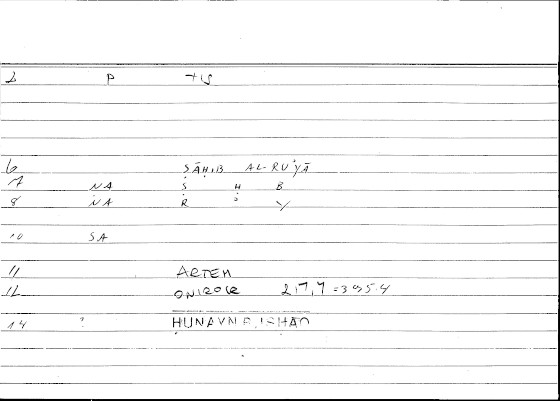 2 P tis
6 ṢĀḤIB AL-RUʾYĀ
7 NA Ṣ Ḥ B
8 NA R ʾ Y
10 SA
11 ARTEM
12 ONIROCR 217,7 = 395.4
14 ? ḤUNAYN B. ISḤĀQ